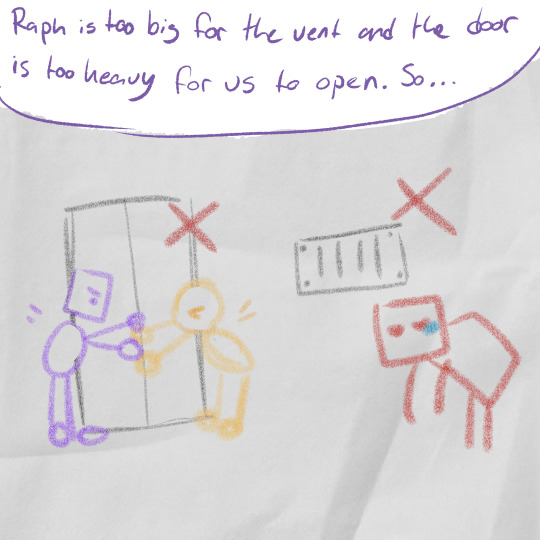 Raph is too big for the vent and the door
is too heavy for us to open. So...